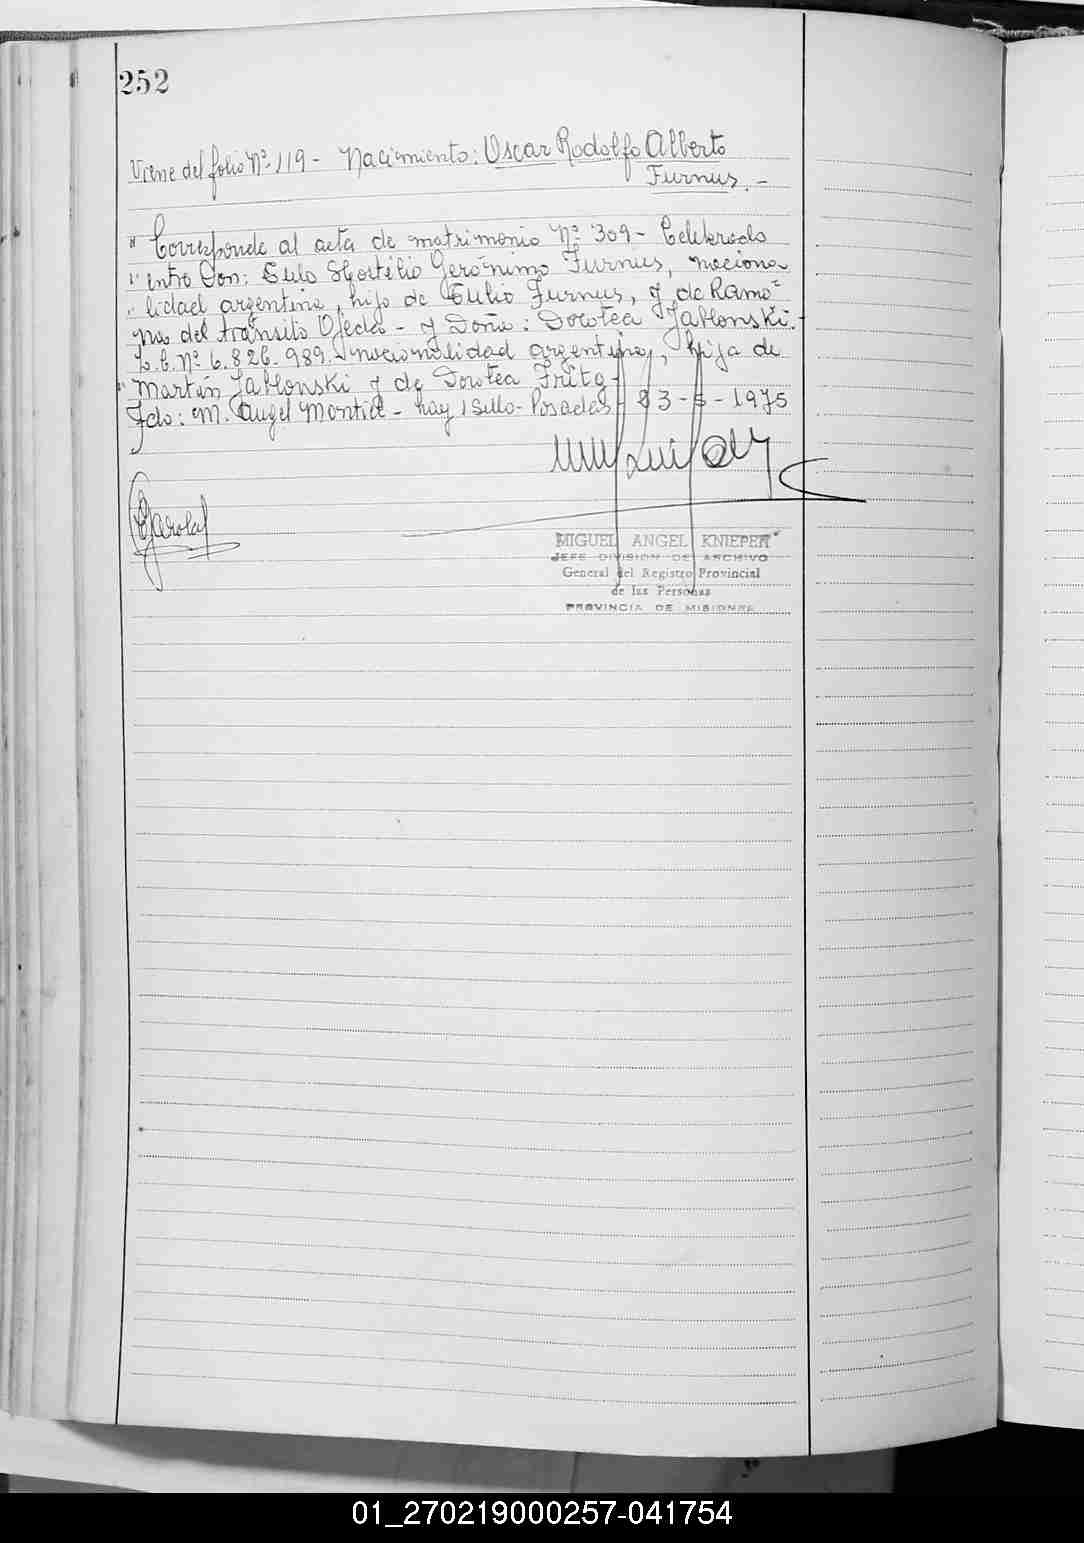 252
Viene del folio Nº 119 - Nacimiento: Oscar Rodolfo Alberto
Furnus. -
" Corresponde al acta de matrimonio Nº 309 - Celebrado
" entre Don: Tulo Hostilio Gerónimo Furnus, naciona
" lidad argentina, hijo de Tulio Furnus, y de Ramo-
na del tránsito Ojeda - y Doña: Dorotea Jablonski.
L.C. Nº 6.826.989. nacionalidad argentina, hija de
" Martín Jablonski y de Dorotea Fritz -
Fdo: M. Angel Montiel - hay 1 Sello - Posadas 23-5-1975
MIGUEL ANGEL KNIEPER
JEFE DIVISION DE ARCHIVO
General del Registro Provincial
de las Personas
PROVINCIA DE MISIONES
01_270219000257-041754